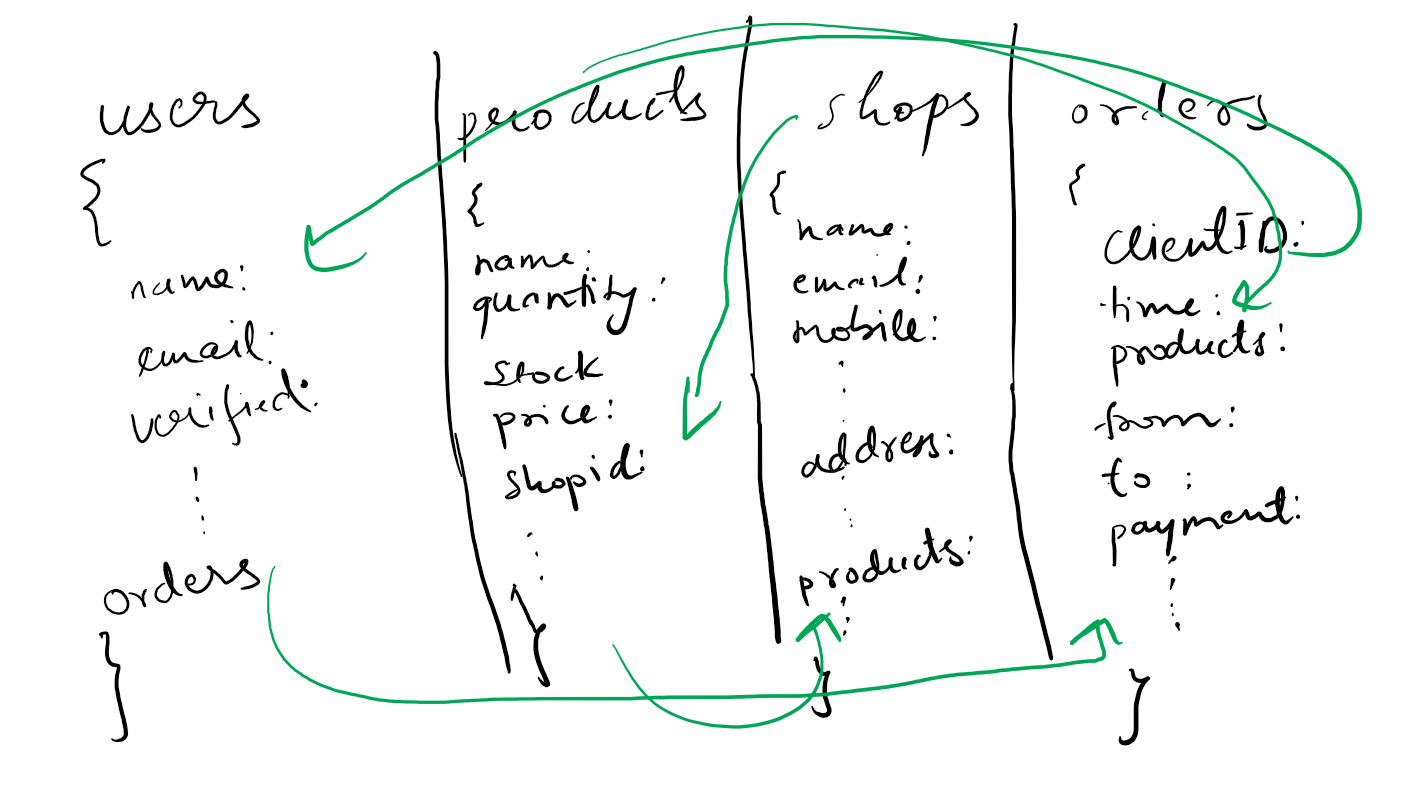 users
{
name:
email:
verified:
orders
}
products
{
name:
quantity:
stock
price:
shopid:
}
shops
{
name:
email:
mobile:
address:
products:
}
orders
{
clientID:
time:
products:
from:
to :
payment:
}